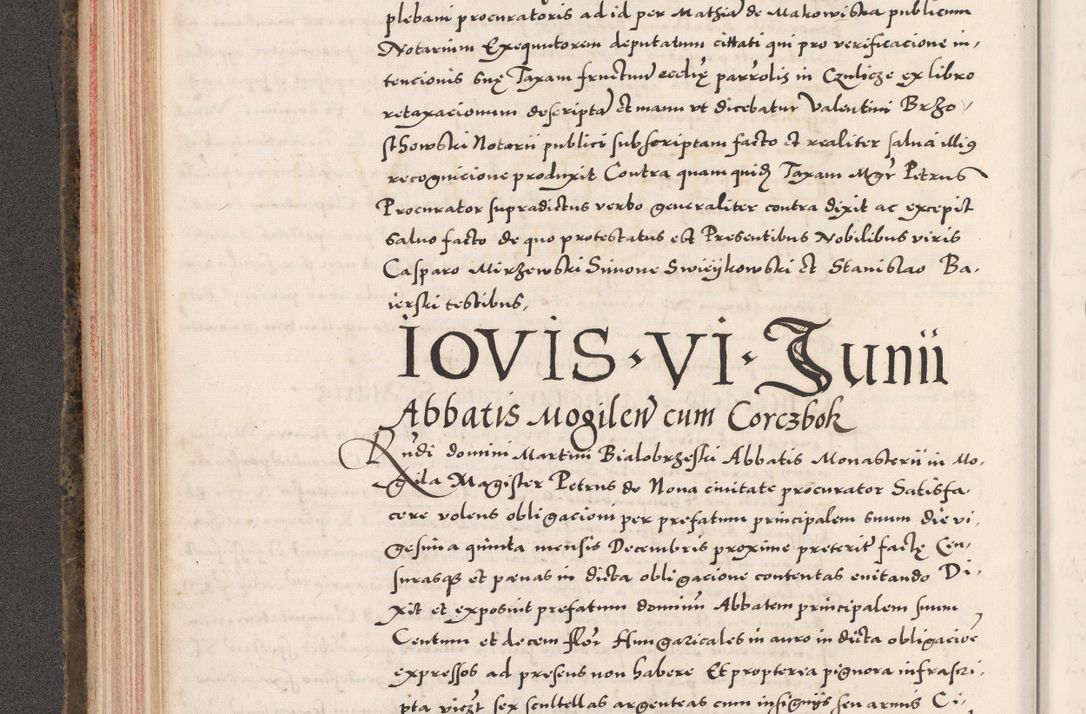 plebani procuratoris ad id per Mathiā de Makowiska publicum
Notarium Exequutorem deputatum cittati qui pro verificacione in-
tencionis suę Taxam fructuū ecclię parrolis in Czulicze ex libro
retaxacionum descriptā et manu vt dicebatur Valentini Brzo-
sthowski Notarii publici subscriptam facto et realiter salua illig
recognicione produxit Contra quam quid Taxam Mgr Petrus
Procurator supradictus verbo generaliter contra dixit ac excepit
saluo facto de quo protestatus est Presentibus Nobilibus viris
Casparo Mirzewski Simone Swiczykowski et Stanislao Ba-
ierski testibus,
IOVIS · VI · Junii
Abbatis Mogilen̄ cum Corczbok
Rn̄di domini Martini Bialobrzeski Abbatis Monasterii in Mo-
gila Magister Petrus de Noua ciuitate procurator Satisfa
cere volens obligacioni per prefatum principalem suum die vi-
gesima quinta mensis Decembris proxime preterit̄ factę Cen-
surasq3 et pœnas in dicta obligacione contentas euitando Di-
xit et exposuit prefatum dominū Abbatem principalem suum
Centum et decem flor̄ Hungaricales in auro in dicta obligacioe
expressos ad presens non habere Et propterea pignora infrascri-
pta viczt sex scultellas argenteas cum insignijs seu armis Ci-